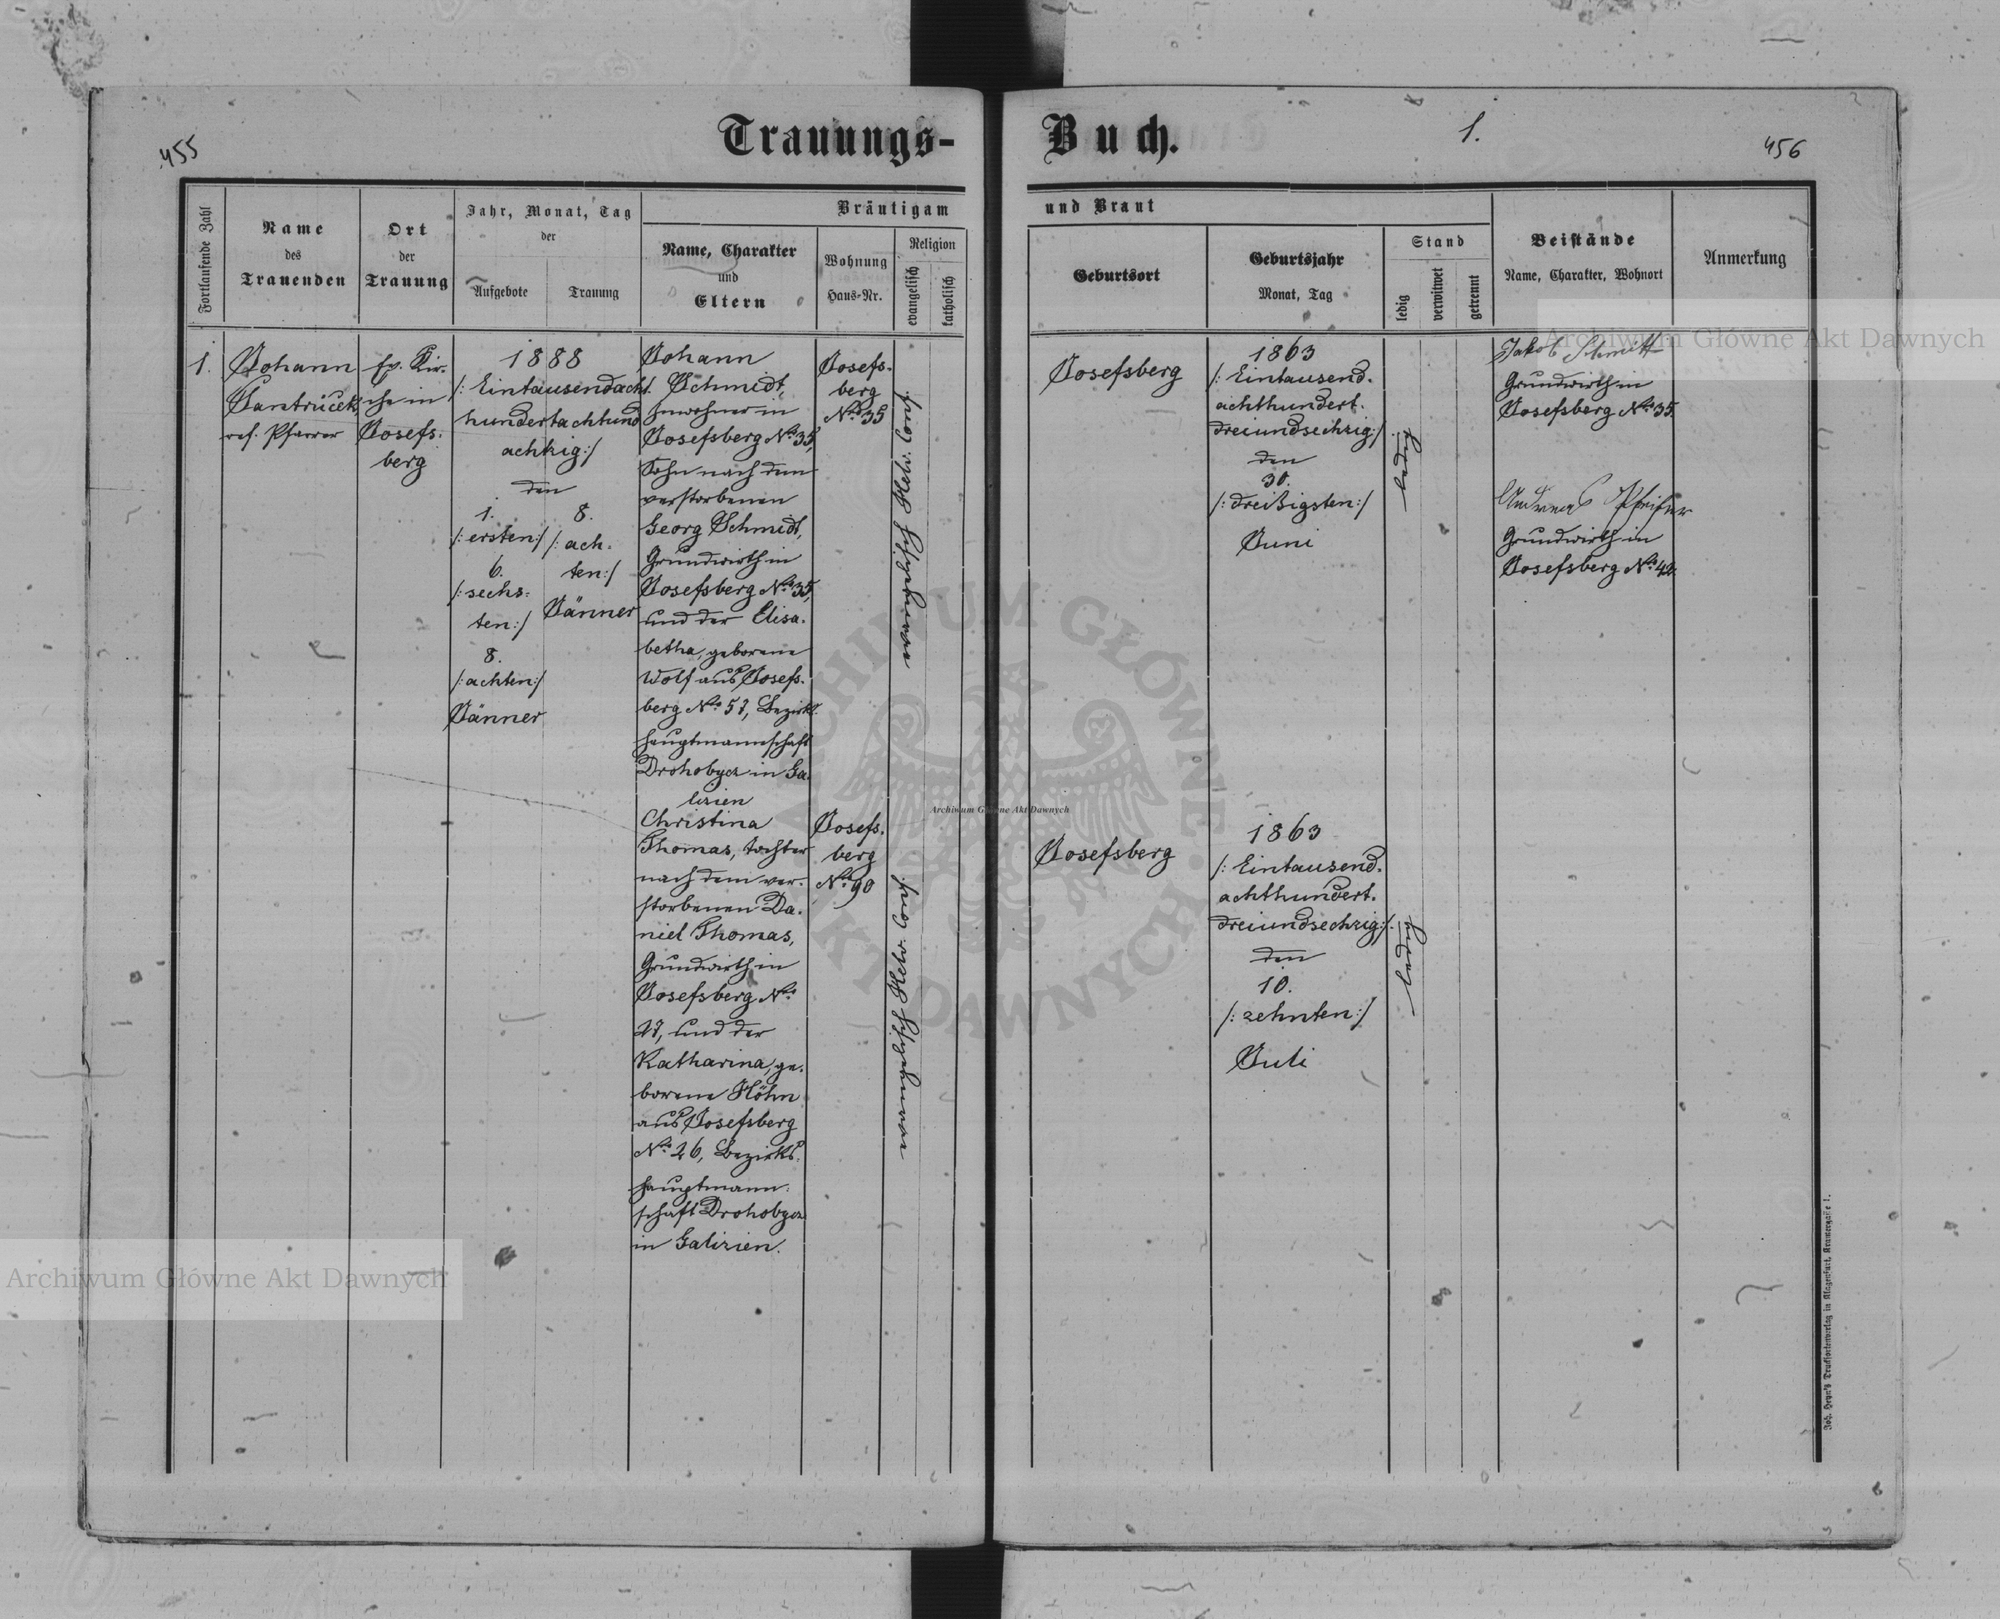 Trauungs-
Buch.
455
1.
456
Fortlaufende Zahl
Name
des
Trauenden
Ort
der
Trauung
Jahr, Monat, Tag
der
Aufgebote
Trauung
Bräutigam
Name, Charakter
und
Eltern
Wohnung
Haus-Nr.
Religion
evangelisch
katholisch
und Braut
Geburtsort
Geburtsjahr
Monat, Tag
Stand
ledig
verwitwet
getrennt
Beistände
Name, Charakter, Wohnort
Anmerkung
1.
Johann
Jantrůcek
ref. Pfarrer
Ev. Kir-
che in
Josefs-
berg
1888
/: Eintausendacht-
hundertachtund
achtzig :/
den
1.
/: ersten :/
6.
/: sechs-
ten :/
8.
/: achten :/
Jänner
8.
/: ach-
ten :/
Jänner
Johann
Schmidt,
Inwohner in
Josefsberg No. 35,
Sohn nach dem
verstorbenen
Georg Schmidt,
Grundwirth in
Josefsberg No. 35,
und der Elisa-
betha, geborene
Wolf aus Josefs-
berg No. 57, Bezirks-
hauptmannschaft
Drohobycz in Ga-
lizien
Josefs-
berg
No. 35
evangelisch Helv. Conf.
Josefsberg
1863
/: Eintausend-
achthundert-
dreiundsechzig :/
den
30.
/: dreißigsten :/
Juni
ledig
Jakob Schmitt
Grundwirth in
Josefsberg No. 35.
Andreas Pfeifer
Grundwirth in
Josefsberg No. 42.
Christina
Thomas, Tochter
nach dem ver-
storbenen Da-
niel Thomas,
Grundwirth in
Josefsberg No.
27, und der
Katharina, ge-
borene Höhn
aus Josefsberg
No. 26, Bezirks-
hauptmann-
schaft Drohobycz
in Galizien.
Josefs-
berg
No. 90
evangelisch Helv. Conf.
Josefsberg
1863
/: Eintausend-
achthundert-
dreiundsechzig :/
den
10.
/: zehnten :/
Juli
ledig
Joh. Heyn's Drucksortenverlag in Klagenfurt, Kramergasse 1.
Archiwum Główne Akt Dawnych
Archiwum Główne Akt Dawnych
Archiwum Główne Akt Dawnych
ARCHIWUM GŁÓWNE AKT DAWNYCH